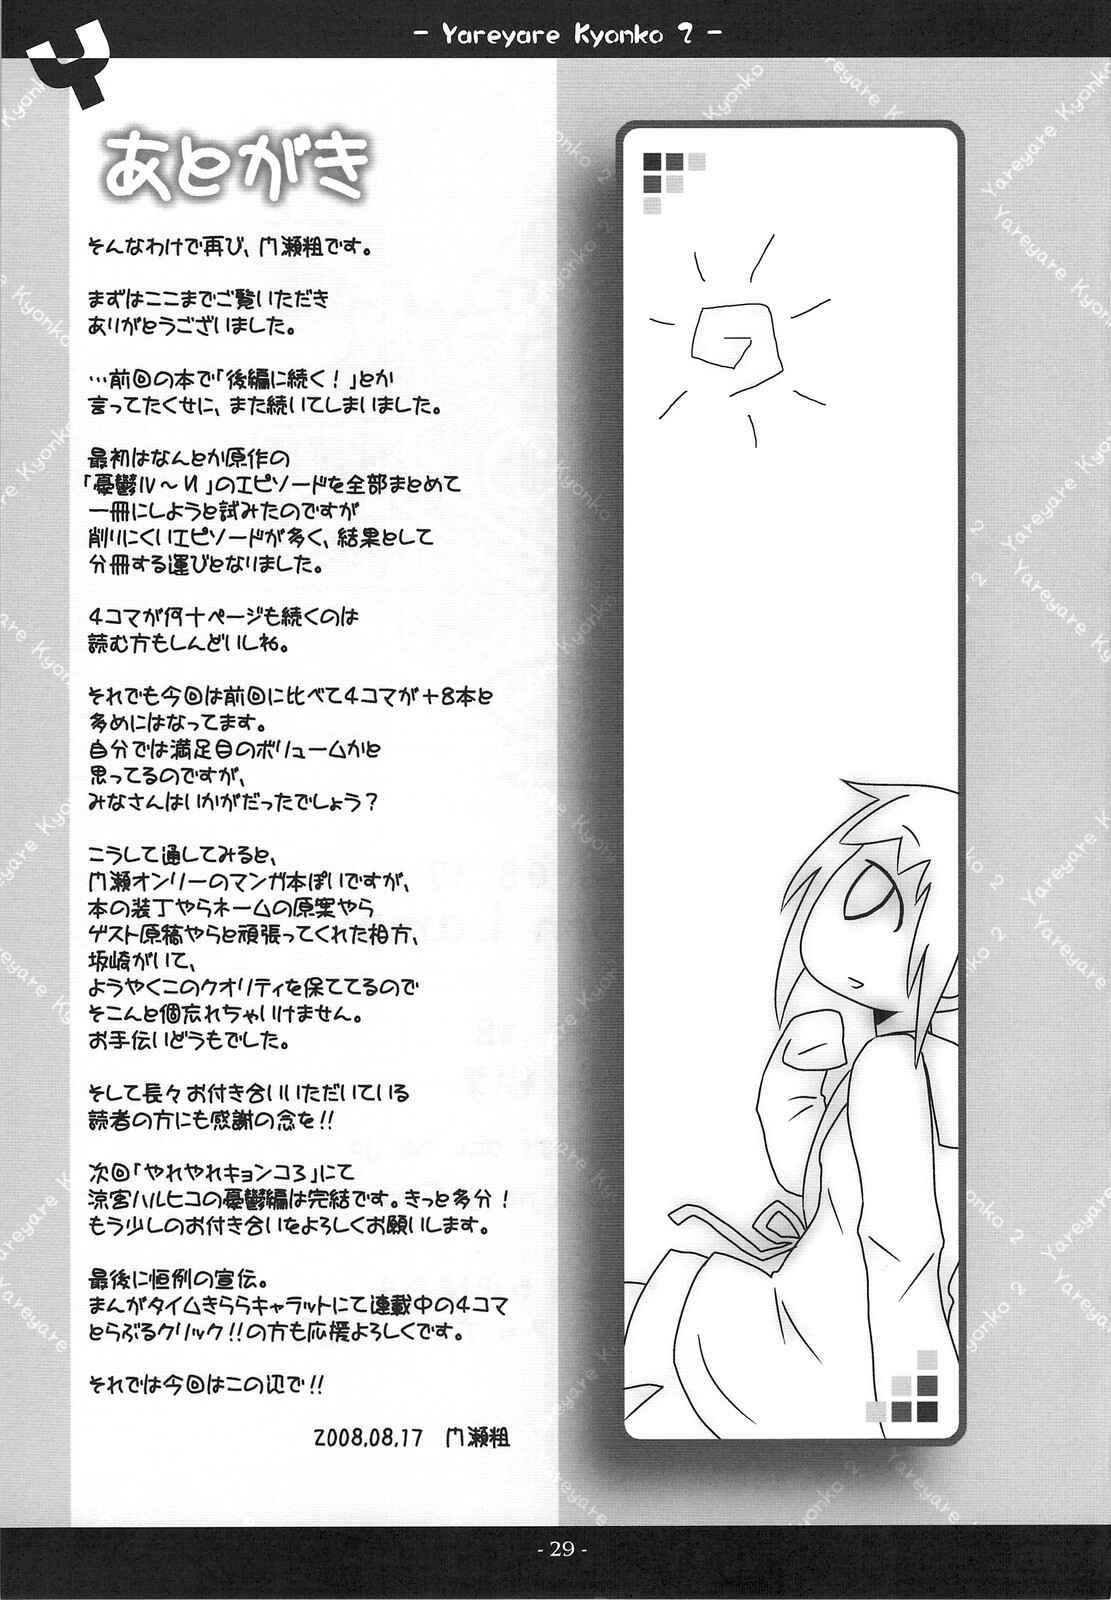 - Yareyare Kyonko 2 -
あとがき
そんなわけで再び、門瀬粗です。
まずはここまでご覧いただき
ありがとうございました。
…前回の本で「後編に続く！」とか
言ってたくせに、また続いてしまいました。
最初はなんとか原作の
「憂鬱Ⅳ～Ⅵ」のエピソードを全部まとめて
一冊にしようと試みたのですが
削りにくいエピソードが多く、結果として
分冊する運びとなりました。
4コマが何十ページも続くのは
読む方もしんどいしね。
それでも今回は前回に比べて4コマが+8本と
多めにはなってます。
自分では満足目のボリュームかと
思ってるのですが、
みなさんはいかがだったでしょう？
こうして通してみると、
門瀬オンリーのマンガ本ぽいですが、
本の装丁やらネームの原案やら
ゲスト原稿やらと頑張ってくれた相方、
坂崎がいて、
ようやくこのクオリティを保ててるので
そこんと個忘れちゃいけません。
お手伝いどうもでした。
そして長々お付き合いいただいている
読者の方にも感謝の念を!!
次回「やれやれキョンコ3」にて
涼宮ハルヒコの憂鬱編は完結です。きっと多分！
もう少しのお付き合いをよろしくお願いします。
最後に恒例の宣伝。
まんがタイムきららキャラットにて連載中の4コマ
とらぶるクリック!!の方も応援よろしくです。
それでは今回はこの辺で!!
2008.08.17　門瀬粗
- 29 -